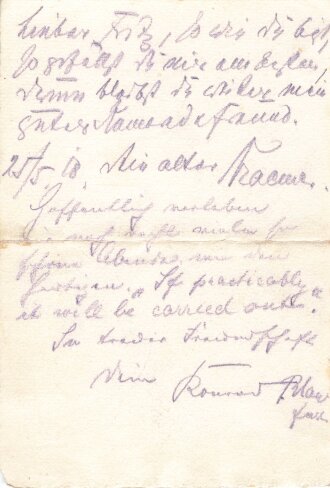 Lieber Fritz, so wie du bist
so gefällst du mir am besten,
denn bleibst du weiter mein
guter Kamerad u. Freund.
25/5. 18. Dein alter
Hoffentlich verleben
noch recht viele so
schöne Abende, wie den
"If practicably
it will be carried out".
In treuer Freundschaft
Dein Konrad